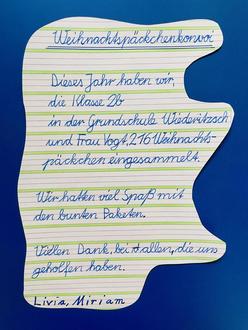 Weihnachtspäckchenkonvoi
Dieses Jahr haben wir,
die Klasse 2b
in der Grundschule Wiederitzsch
und Frau Vogt, 216 Weihnachts-
päckchen eingesammelt.
Wir hatten viel Spaß mit
den bunten Paketen.
Vielen Dank, bei allen, die uns
geholfen haben.
Livia, Miriam